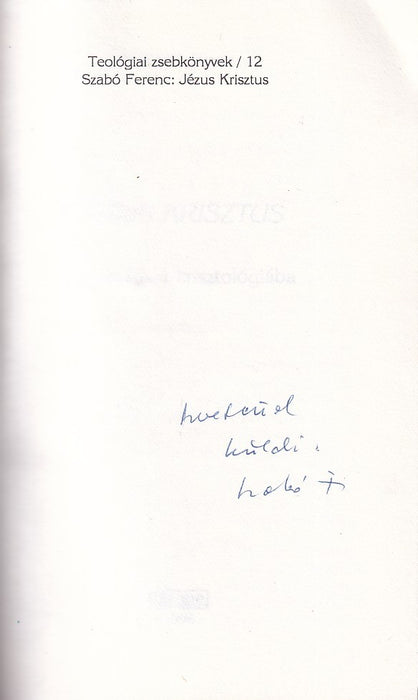 Teológiai zsebkönyvek / 12
Szabó Ferenc: Jézus Krisztus
KRISZTUS
krisztológiába
szeretettel
küldi:
Szabó F